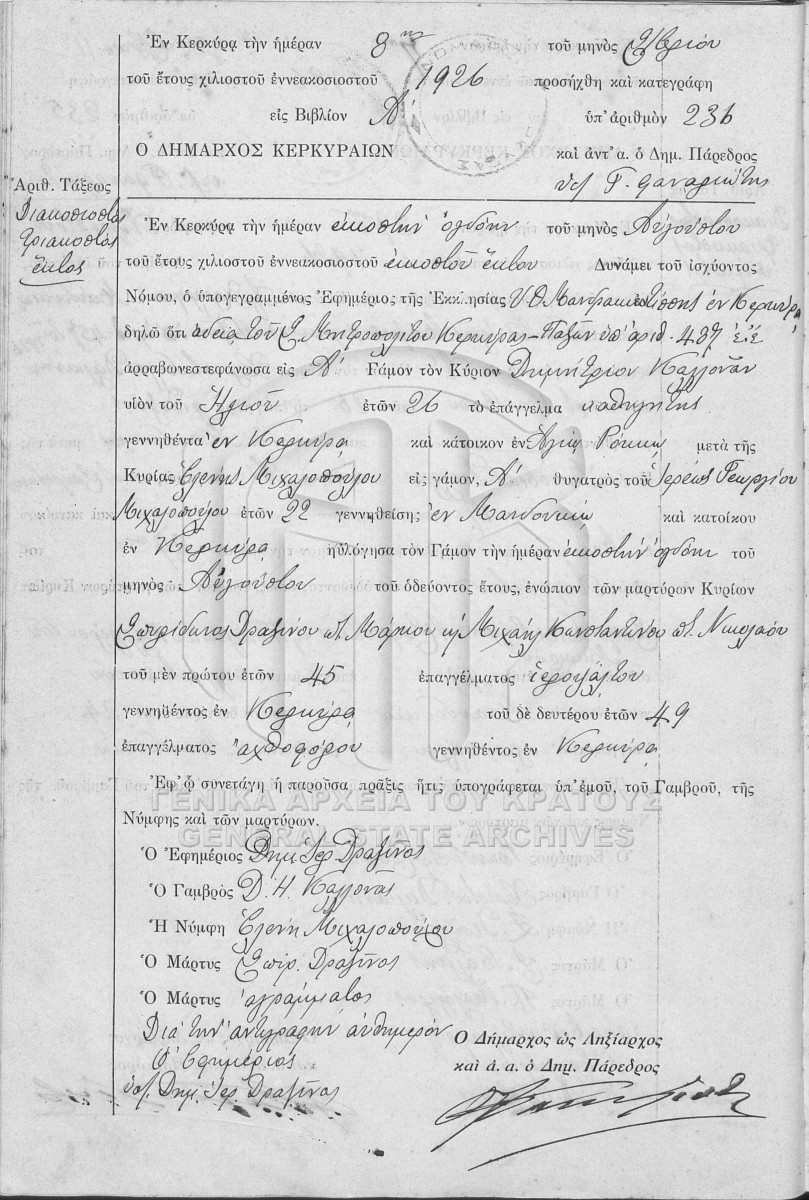 Ἐν Κερκύρᾳ τὴν ἡμέραν 8ην τοῦ μηνὸς 7βρίου
τοῦ ἔτους χιλιοστοῦ ἐννεακοσιοστοῦ 1926 προσήχθη καὶ κατεγράφη
εἰς Βιβλίον Α΄ ὑπ' ἀριθμὸν 236
Ο ΔΗΜΑΡΧΟΣ ΚΕΡΚΥΡΑΙΩΝ καὶ ἀντ' α. ὁ Δημ. Πάρεδρος
Γ. Φαναλιώτης
Ἀριθ. Τάξεως
Διακοσιοστὸς
τριακοστὸς
ἕκτος
Ἐν Κερκύρᾳ τὴν ἡμέραν εἰκοστὴν ὀγδόην τοῦ μηνὸς Αὐγούστου
τοῦ ἔτους χιλιοστοῦ ἐννεακοσιοστοῦ εἰκοστοῦ ἕκτου Δυνάμει τοῦ ἰσχύοντος
Νόμου, ὁ ὑπογεγραμμένος Ἐφημέριος τῆς Ἐκκλησίας Υ.Θ. ἐν Κερκύρᾳ
δηλῶ ὅτι ἀδείᾳ τοῦ Σ. Μητροπολίτου Κερκύρας - Παξῶν ὑπ' ἀριθ. 437 ἐ.ἔ.
ἀρραβωνεστεφάνωσα εἰς Α΄ Γάμον τὸν Κύριον Δημήτριον Καλλονᾶν
υἱὸν τοῦ Ἠλιοῦ ἐτῶν 26 τὸ ἐπάγγελμα καθηγητὴς
γεννηθέντα ἐν Κερκύρᾳ καὶ κάτοικον ἐν Ἁγίῳ Ρόκκῳ μετὰ τῆς
Κυρίας Ἑλένης Μιχαλοπούλου εἰς γάμον, Α΄ θυγατρὸς τοῦ Ἱερέως Γεωργίου
Μιχαλοπούλου ἐτῶν 22 γεννηθείσης ἐν Μανδουκίῳ καὶ κατοίκου
ἐν Κερκύρᾳ ηὐλόγησα τὸν Γάμον τὴν ἡμέραν εἰκοστὴν ὀγδόην τοῦ
μηνὸς Αὐγούστου τοῦ ὁδεύοντος ἔτους, ἐνώπιον τῶν μαρτύρων Κυρίων
Σπυρίδωνος Δραζίνου π. Μάρκου κ Μιχαὴλ Κωνσταντίνου π. Νικολάου
τοῦ μὲν πρώτου ἐτῶν 45 ἐπαγγέλματος ἱεροψάλτου
γεννηθέντος ἐν Κερκύρᾳ τοῦ δὲ δευτέρου ἐτῶν 49
ἐπαγγέλματος ἀχθοφόρου γεννηθέντος ἐν Κερκύρᾳ
Ἐφ' ᾧ συνετάγη ἡ παροῦσα πρᾶξις ἥτις ὑπογράφεται ὑπ' ἐμοῦ, τοῦ Γαμβροῦ, τῆς
Νύμφης καὶ τῶν μαρτύρων.
ΓΕΝΙΚΑ ΑΡΧΕΙΑ ΤΟΥ ΚΡΑΤΟΥΣ
GENERAL STATE ARCHIVES
Ὁ Ἐφημέριος Δημ. Ἱερ. Δραζῖνος
Ὁ Γαμβρὸς Δ. Η. Καλλονᾶς
Ἡ Νύμφη Ἑλένη Μιχαλοπούλου
Ὁ Μάρτυς Σπυρ. Δραζῖνος
Ὁ Μάρτυς ἀγράμματος
Διὰ τὴν ἀντιγραφὴν αὐθημερόν
Ὁ Ἐφημέριος
ὑπ. Δημ. Ἱερ. Δραζῖνος
Ὁ Δήμαρχος ὡς Ληξίαρχος
καὶ ἀ. α. ὁ Δημ. Πάρεδρος